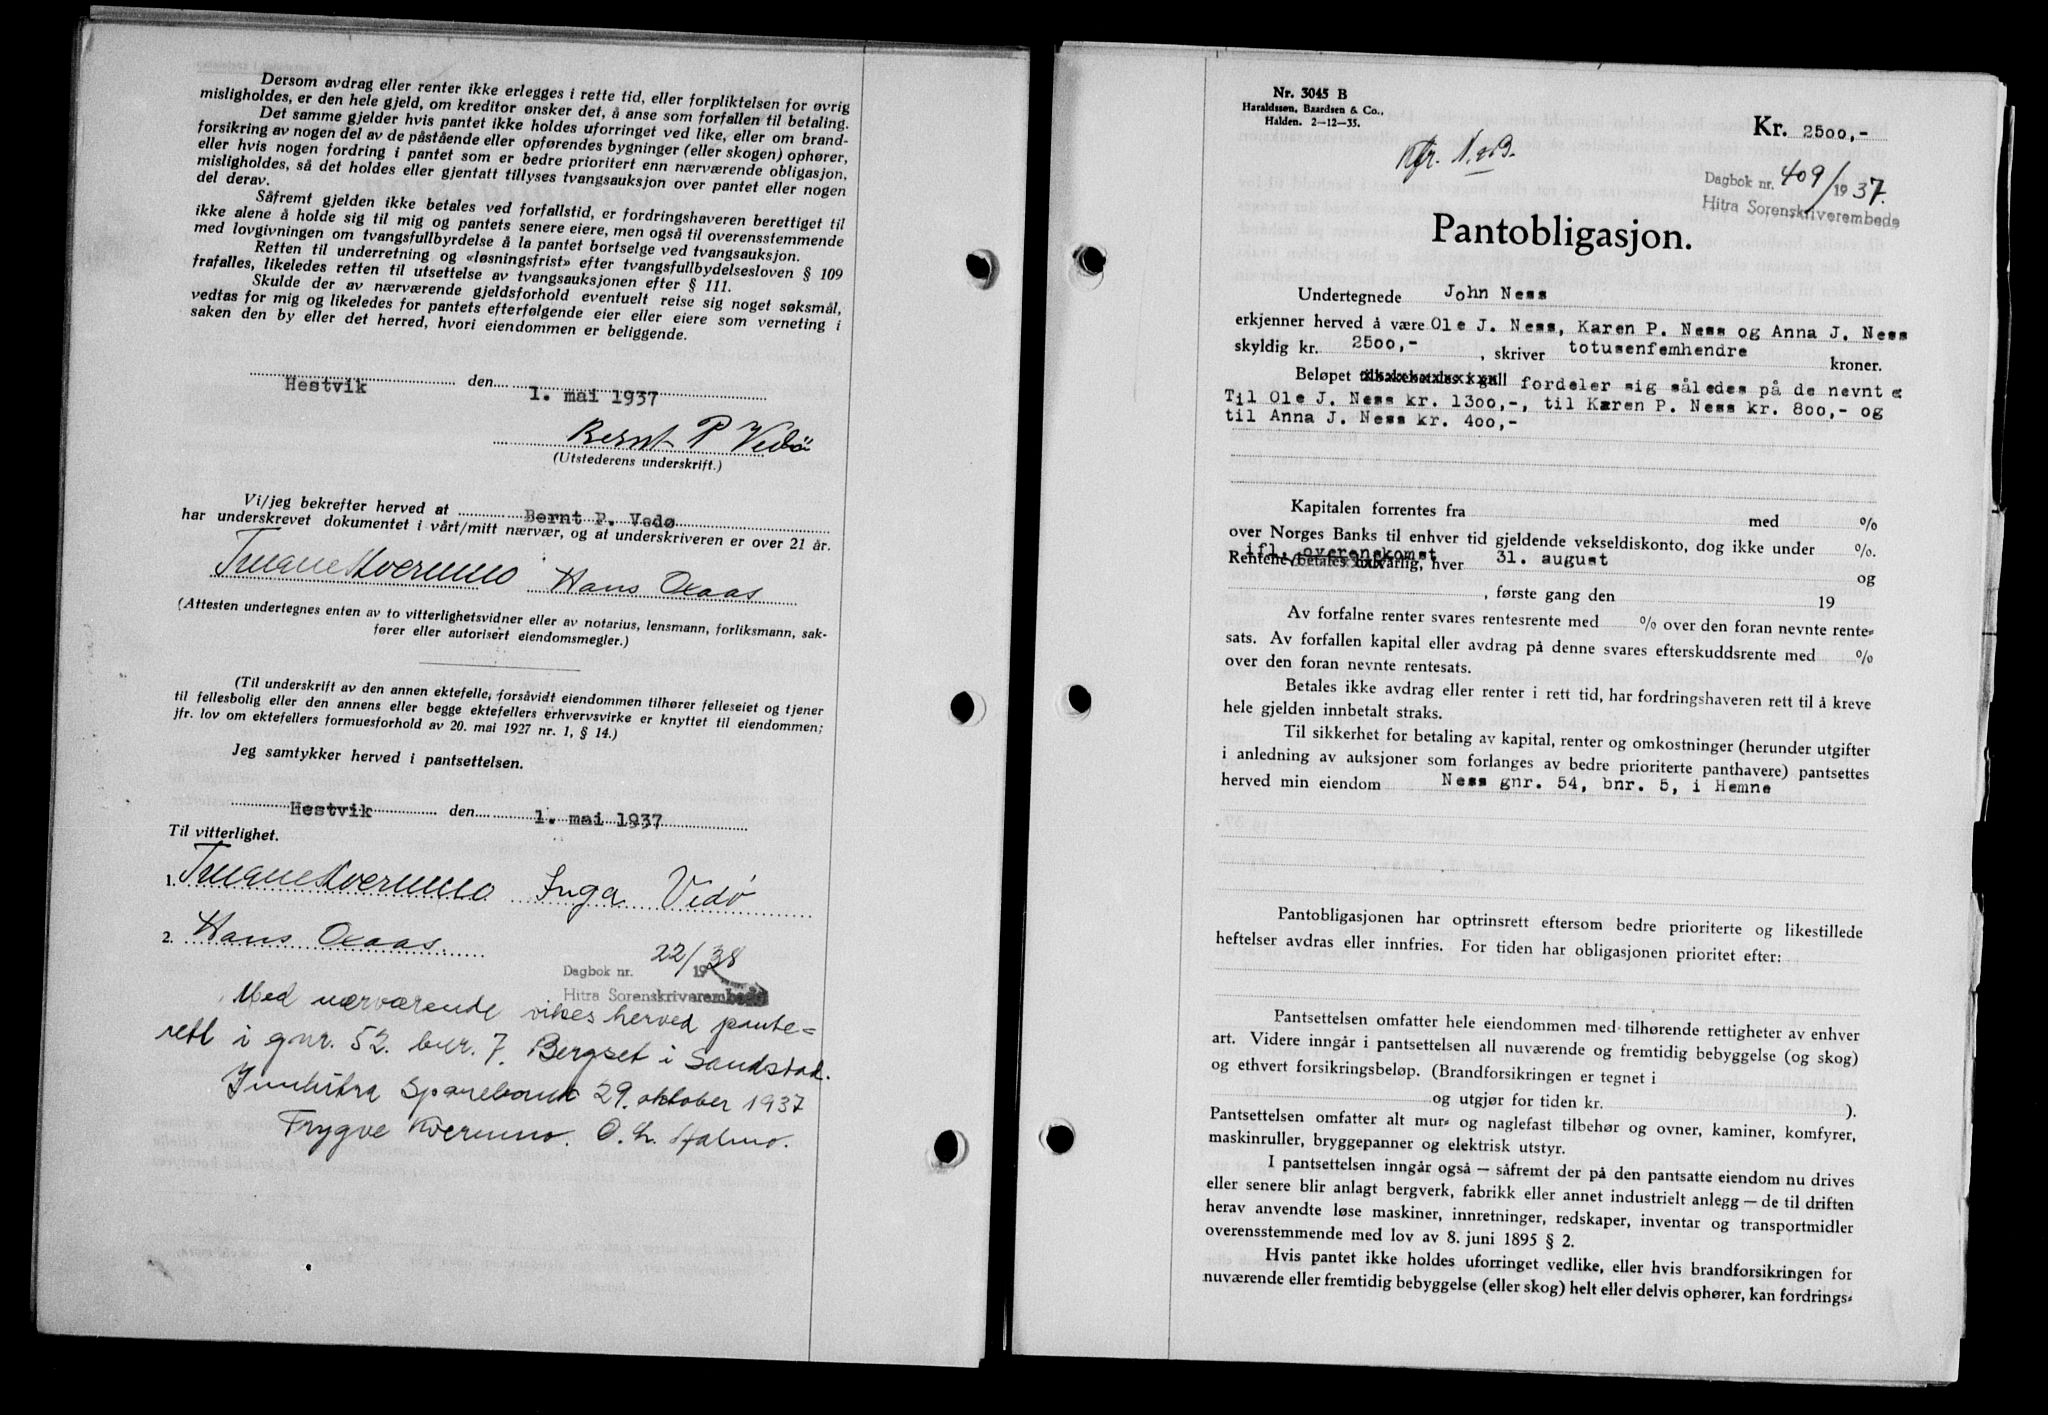 Dersom avdrag eller renter ikke erlegges i rette tid, eller forpliktelsen for øvrig
misligholdes, er den hele gjeld, om kreditor ønsker det, å anse som forfallen til betaling.
Det samme gjelder hvis pantet ikke holdes uforringet ved like, eller om brand-
forsikring av nogen del av de påstående eller opførendes bygninger (eller skogen) ophører,
eller hvis nogen fordring i pantet som er bedre prioritert enn nærværende obligasjon,
misligholdes, så det holdes eller gjentatt tillyses tvangsauksjon over pantet eller nogen
del derav.
Såfremt gjelden ikke betales ved forfallstid, er fordringshaveren berettiget til
ikke alene å holde sig til mig og pantets senere eiere, men også til overensstemmende
med lovgivningen om tvangsfullbyrdelse å la pantet bortselge ved tvangsauksjon.
Retten til underretning og «løsningsfrist» efter tvangsfullbydelsesloven § 109
frafalles, likeledes retten til utsettelse av tvangsauksjonen efter § 111.
Skulde der av nærværende gjeldsforhold eventuelt reise sig noget søksmål,
vedtas for mig og likeledes for pantets efterfølgende eier eller eiere som verneting i
saken den by eller det herred, hvori eiendommen er beliggende.
Hestvik den 1. mai 1937
Bernt P Vedø
(Utstederens underskrift.)
Vi/jeg bekrefter herved at Bernt P. Vedø
har underskrevet dokumentet i vårt/mitt nærvær, og at underskriveren er over 21 år.
Hans Oxaas
(Attesten undertegnes enten av to vitterlighetsvidner eller av notarius, lensmann, forliksmann, sak-
fører eller autorisert eiendomsmegler.)
(Til underskrift av den annen ektefelle, forsåvidt eiendommen tilhører felleseiet og tjener
til fellesbolig eller den annens eller begge ektefellers erhvervsvirke er knyttet til eiendommen;
jfr. lov om ektefellers formuesforhold av 20. mai 1927 nr. 1, § 14.)
Jeg samtykker herved i pantsettelsen.
Hestvik den 1. mai 1937
Til vitterlighet.
1. Inga Vedø
2. Hans Oxaas.
Dagbok nr. 22/1938
Hitra Sorenskriverembede
Med nærværende vikes herved pante=
rett i gnr. 52. bnr. 7. Bergset i Sandstad.
Innhitra Sparebank 29. oktober 1937
Trygve Kvernmo. O. h. Halmo.
Nr. 3045 B
Haraldssøn, Baardsen & Co.,
Halden. 2-12-35.
Kr. 2500,-
Dagbok nr. 409/1937.
Hitra Sorenskriverembede
Pantobligasjon.
Undertegnede John Ness
erkjenner herved å være Ole J. Ness, Karen P. Ness og Anna J. Ness
skyldig kr. 2500,- , skriver totusenfemhendre kroner.
Beløpet fordeler sig således på de nevnte
Til Ole J. Ness kr. 1300,-, til Karen P. Ness kr. 800,- og
til Anna J. Ness kr. 400,-
Kapitalen forrentes fra med %
over Norges Banks til enhver tid gjeldende vekseldiskonto, dog ikke under %.
ifl. overenskomst
Rentene betales halvårlig, hver 31. august og
, første gang den 19
Av forfalne renter svares rentesrente med % over den foran nevnte rente=
sats. Av forfallen kapital eller avdrag på denne svares efterskuddsrente med %
over den foran nevnte rentesats.
Betales ikke avdrag eller renter i rett tid, har fordringshaveren rett til å kreve
hele gjelden innbetalt straks.
Til sikkerhet for betaling av kapital, renter og omkostninger (herunder utgifter
i anledning av auksjoner som forlanges av bedre prioriterte panthavere) pantsettes
herved min eiendom Ness gnr. 54, bnr. 5, i Hemne
Pantobligasjonen har optrinsrett eftersom bedre prioriterte og likestillede
heftelser avdras eller innfries. For tiden har obligasjonen prioritet efter:
Pantsettelsen omfatter hele eiendommen med tilhørende rettigheter av enhver
art. Videre inngår i pantsettelsen all nuværende og fremtidig bebyggelse (og skog)
og ethvert forsikringsbeløp. (Brandforsikringen er tegnet i
og utgjør for tiden kr. ).
Pantsettelsen omfatter alt mur= og naglefast tilbehør og ovner, kaminer, komfyrer,
maskinruller, bryggepanner og elektrisk utstyr.
I pantsettelsen inngår også — såfremt der på den pantsatte eiendom nu drives
eller senere blir anlagt bergverk, fabrikk eller annet industrielt anlegg — de til driften
herav anvendte løse maskiner, innretninger, redskaper, inventar og transportmidler
overensstemmende med lov av 8. juni 1895 § 2.
Hvis pantet ikke holdes uforringet vedlike, eller hvis brandforsikringen for
nuværende eller fremtidig bebyggelse (eller skog) helt eller delvis ophører, kan fordrings=